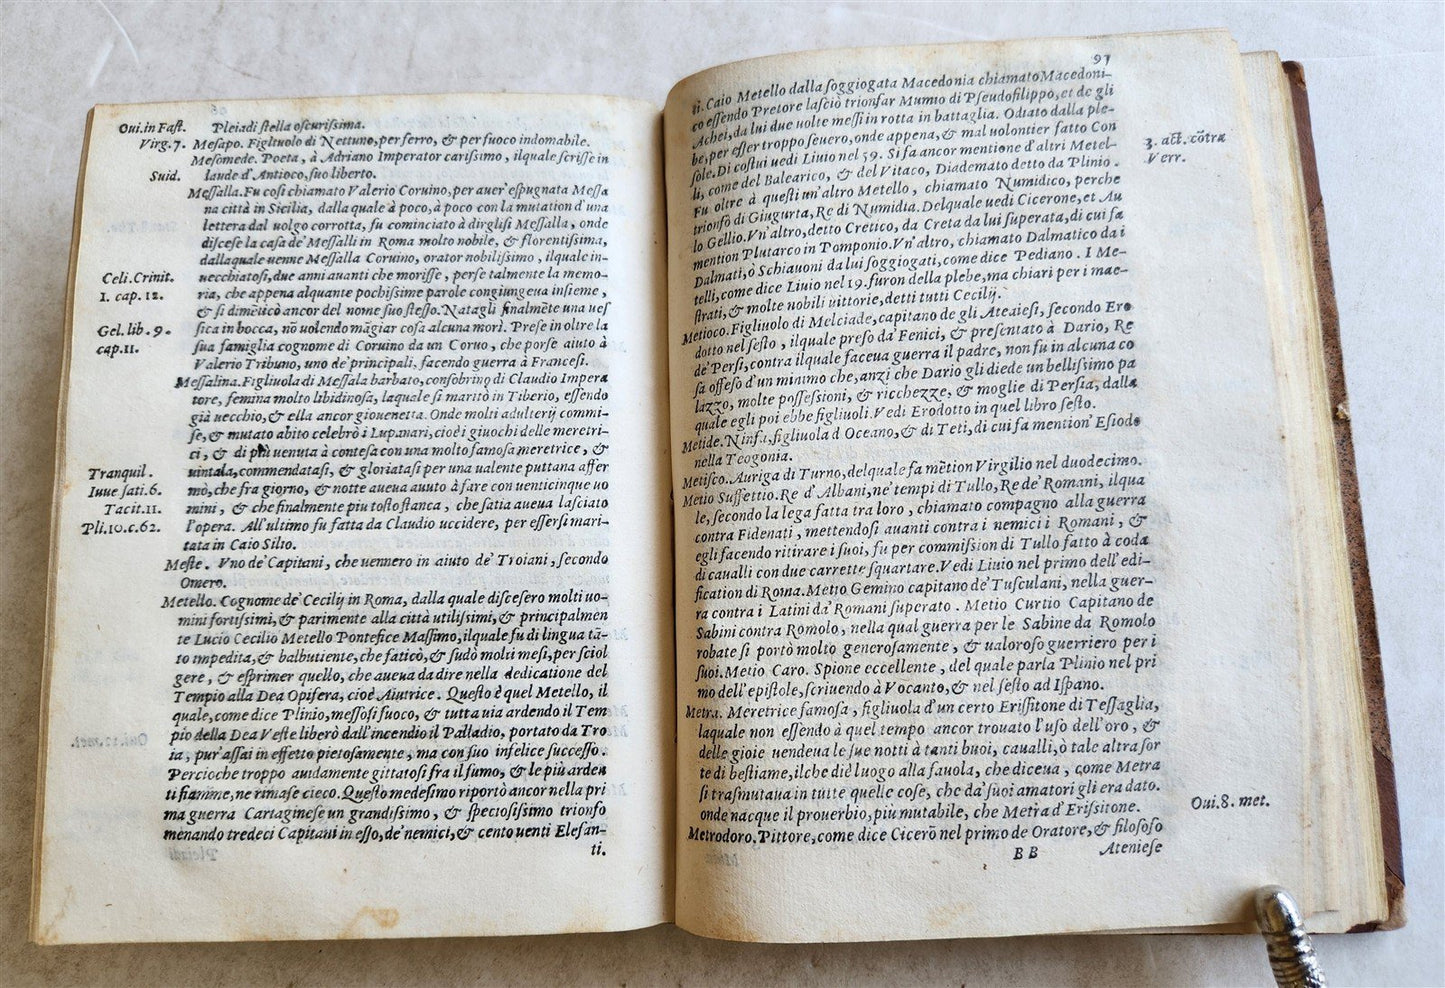 Oui.in Fast.
Virg.7.
Suid.
Celi.Crinit.
I. cap. 12.
Gel. lib. 9.
cap.11.
Tranquil.
Iuue sati.6.
Tacit.11.
Pli.10.c.62.
Pleiadi stella oscurissima.
Mesapo. Figliuolo di Nettuno, per ferro, & per fuoco indomabile.
Mesomede. Poeta, à Adriano Imperator carissimo, ilquale scrisse in
laude d'Antioco, suo liberto.
Messalla. Fu cosi chiamato Valerio Coruino, per auer' espugnata Messa
na città in Sicilia, dalla quale à poco, à poco con la mutation d'una
lettera dal uolgo corrotta, fu cominciato à dirglisi Messalla, onde
discese la casa de' Messalli in Roma molto nobile, & florentissima,
dallaquale uenne Messalla Coruino, orator nobilissimo, ilquale in-
uecchiatosi, due anni auanti che morisse, perse talmente la memo-
ria, che appena alquante pochissime parole congiungeua insieme,
& si dimēticò ancor del nome suo stesso. Natagli finalmēte una ues
sica in bocca, nō uolendo māgiar cosa alcuna morì. Prese in oltre la
sua famiglia cognome di Coruino da un Coruo, che porse aiuto à
Valerio Tribuno, uno de' principali, facendo guerra à Francesi.
Messalina. Figliuola di Messala barbato, consobrina di Claudio Impera
tore, femina molto libidinosa, laquale si maritò in Tiberio, essendo
già uecchio, & ella ancor giouenetta. Onde molti adulterij commi-
se, & mutato abito celebrò i Lupanari, cioè i giuochi delle meretri-
ci, & di più uenuta à contesa con una molto famosa meretrice, &
uintala, commendatasi, & gloriatasi per una ualente puttana affer
mò, che fra giorno, & notte aueua auuto à fare con uenticinque uo
mini, & che finalmente piu tosto stanca, che satia aueua lasciato
l'opera. All'ultimo fu fatta da Claudio uccidere, per essersi mari-
tata in Caio Silio.
Meste. Vno de' Capitani, che uennero in aiuto de' Troiani, secondo
Omero.
Metello. Cognome de' Cecilij in Roma, dalla quale discesero molti uo-
mini fortissimi, & parimente alla città utilissimi, & principalmen
te Lucio Cecilio Metello Pontefice Massimo, ilquale fu di lingua tā-
to impedita, & balbutiente, che faticò, & sudò molti mesi, per sciol
gere, & esprimer quello, che aueua da dire nella dedicatione del
Tempio alla Dea Opifera, cioè Aiutrice. Questo è quel Metello, il
quale, come dice Plinio, messosi fuoco, & tutta uia ardendo il Tem
pio della Dea Veste liberò dall'incendio il Palladio, portato da Tro
ia, pur' assai in effetto pietosamente, ma con suo infelice successo.
Percioche troppo auidamente gittatosi fra il fumo, & le più arden
ti fiamme, ne rimase cieco. Questo medesimo riportò ancor nella pri
ma guerra Cartaginese un grandissimo, & spectosissimo trionfo
menando tredeci Capitani in esso, de' nemici, & cento uenti Elefan-
ti.
97
ti. Caio Metello dalla soggiogata Macedonia chiamato Macedoni-
co essendo Pretore lasciò trionfar Mumio di Pseudofilippo, et de gli
Achei, da lui due uolte messi in rotta in battaglia. Odiato dalla ple-
be, per esser troppo seuero, onde appena, & mal uolontier fatto Con
sole. Di costui uedi Liuio nel 59. Si fa ancor mentione d'altri Metel-
li, come del Balearico, & del Vitaco, Diademato detto da Plinio.
Fu oltre à questi un'altro Metello, chiamato Numidico, perche
trionfò di Giugurta, Re di Numidia. Delquale uedi Cicerone, et Au
lo Gellio. Vn'altro, detto Cretico, da Creta da lui superata, di cui fa
mention Plutarco in Pomponio. Vn'altro, chiamato Dalmatico da i
Dalmati, ò Schiauoni da lui soggiogati, come dice Pediano. I Me-
telli, come dice Liuio nel 19. furon della plebe, ma chiari per i mae-
strati, & molte nobili uittorie, detti tutti Cecilij.
Metioco. Figliuolo di Melciade, capitano de gli Ateaiesi, secondo Ero
dotto nel sesto, ilquale preso da' Fenici, & presentato à Dario, Re
de' Persi, contra ilquale faceua guerra il padre, non fu in alcuna co
sa offeso d'un minimo che, anzi che Dario gli diede un bellissimo pa
lazzo, molte possessioni, & ricchezze, & moglie di Persia, dalla
quale egli poi ebbe figliuoli. Vedi Erodotto in quel libro sesto.
Metide. Ninfa, figliuola d Oceano, & di Teti, di cui fa mention' Esiodo
nella Teogonia.
Metisco. Auriga di Turno, delquale fa mētion Virgilio nel duodecimo.
Metio Suffettio. Re d'Albani, ne' tempi di Tullo, Re de' Romani, ilqua
le, secondo la lega fatta tra loro, chiamato compagno alla guerra
contra Fidenati, mettendosi auanti contra i nemici i Romani, &
egli facendo ritirare i suoi, fu per commission di Tullo fatto à coda
di caualli con due carrette squartare. Vedi Liuio nel primo dell'edi-
fication di Roma. Metio Gemino capitano de' Tusculani, nella guer-
ra contra i Latini da' Romani superato. Metio Curtio Capitano de
Sabini contra Romolo, nella qual guerra per le Sabine da Romolo
robate si portò molto generosamente, & ualoroso guerriero per i
suoi. Metio Caro. Spione eccellente, del quale parla Plinio nel pri
mo dell'epistole, scriuendo à Vocanto, & nel sesto ad Ispano.
Metra. Meretrice famosa, figliuola d'un certo Erissitone di Tessaglia,
laquale non essendo à quel tempo ancor trouato l'uso dell'oro, &
delle gioie uendeua le sue notti à tanti buoi, caualli, ò tale altra sor
te di bestiame, ilche diè luogo alla fauola, che diceua, come Metra
si trasmutaua in tutte quelle cose, che da' suoi amatori gli era dato.
onde nacque il prouerbio, più mutabile, che Metra d'Erissitone.
Metrodoro. Pittore, come dice Cicerō nel primo de Oratore, & filosofo
BB
Ateniese
3. act. cōtra
Verr.
Oui.8. met.